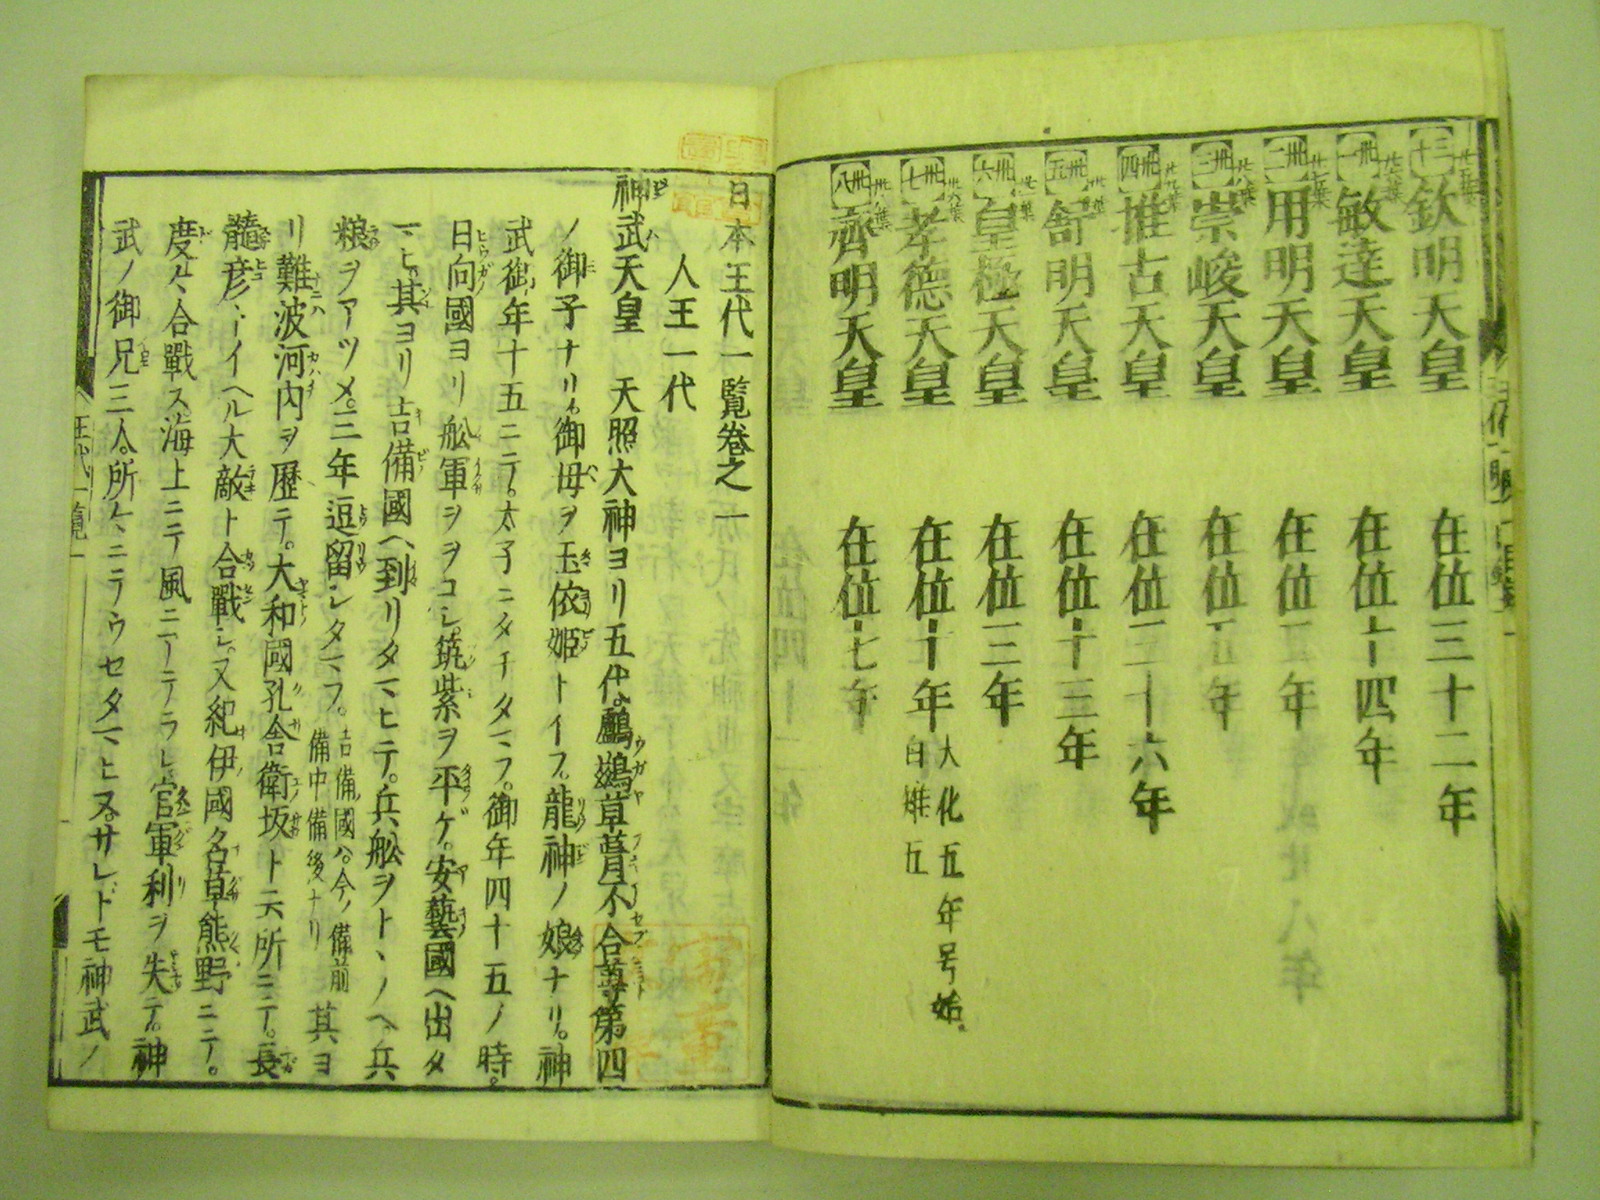 欽明天皇 在位三十二年
敏達天皇 在位十四年
用明天皇 在位二年
崇峻天皇 在位五年
推古天皇 在位三十六年
舒明天皇 在位十三年
皇極天皇 在位三年
孝德天皇 在位十年 大化五年号始 白雉五
齊明天皇 在位七年
日本王代一覧巻之一
人王一代
神武天皇 天照大神ヨリ五代鸕鷀草葺不合尊第四
ノ御子ナリ御母ヲ玉依姫トイフ龍神ノ娘ナリ神
武御年十五ニテ太子ニタチタマフ御年四十五ノ時
日向國ヨリ舩軍ヲヲコシ筑紫ヲ平ゲ安藝國ヘ出タ
マヒ其ヨリ吉備國ヘ到リタマヒテ兵舩ヲトヽノヘ兵
粮ヲアツメ三年逗留シタマフ吉備國ハ今ノ備前備中備後ナリ其ヨ
リ難波河内ヲ歴テ大和國孔舎衛坂ト云所ニテ長
髓彦トイヘル大敵ト合戰シ又紀伊國名草熊野ニテ
度々合戰ス海上ニテ風ニアテラレ官軍利ヲ失テ神
武ノ御兄三人所々ニテウセタマヒヌサレドモ神武ノ
王代一覧一